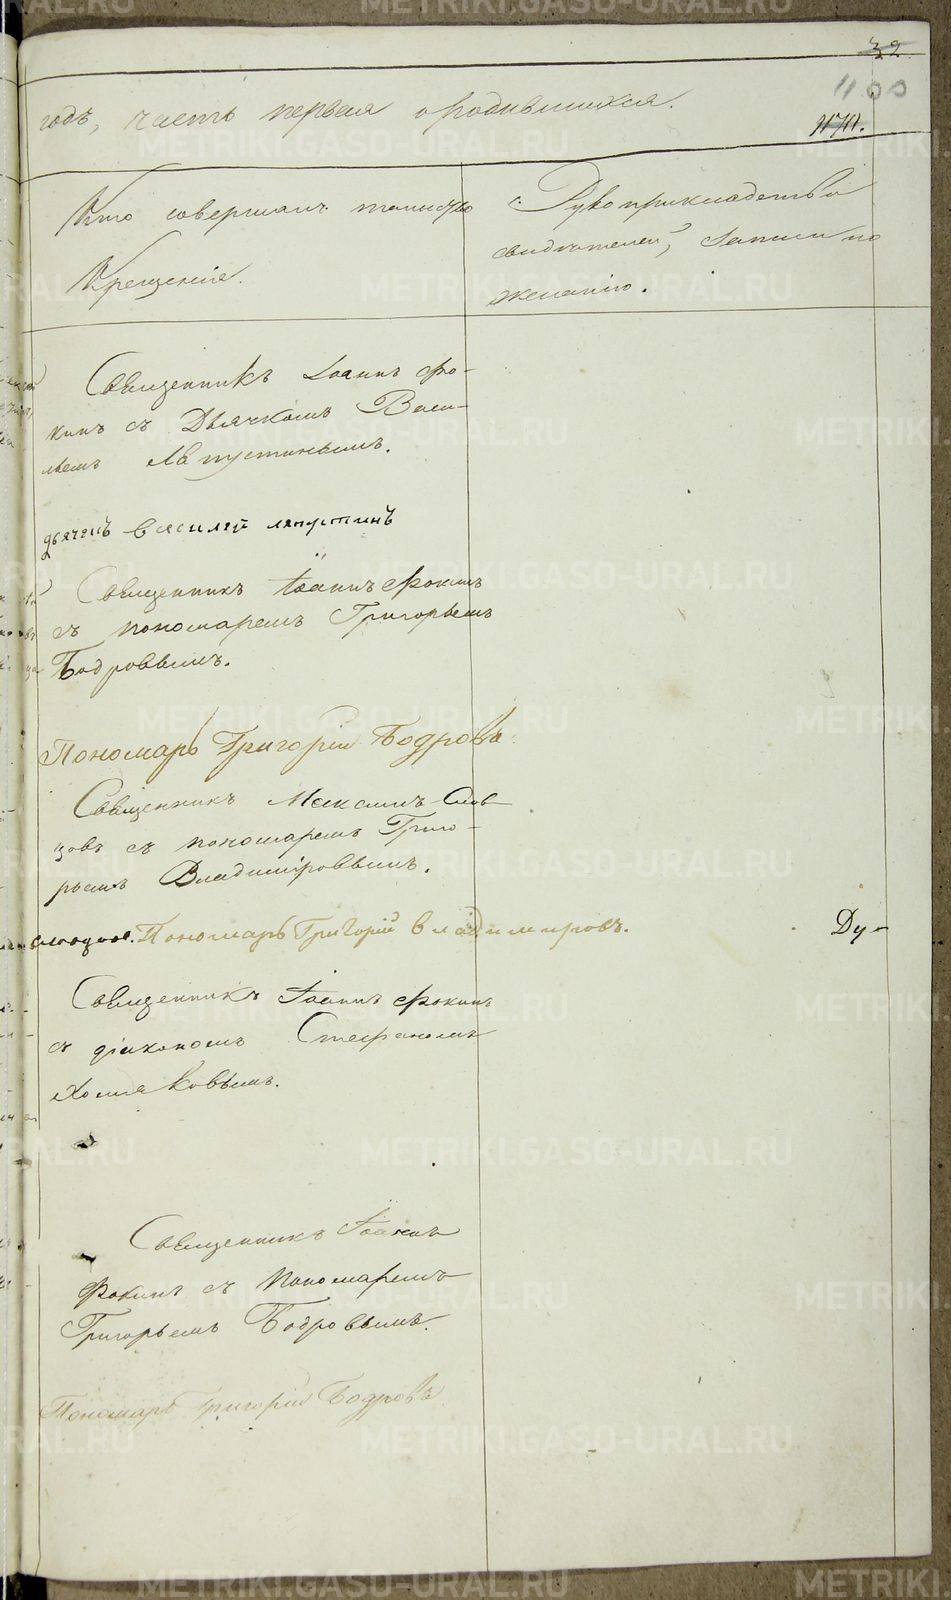 32
1100
годъ, часть первая о родившихся.
Кто совершалъ таинство
Крещенiе.
Рукоприкладство
свидѣтелей, записи по
желанiю.
Священникъ Iоаннъ Фо-
кинъ съ Дьячкомъ Васи-
льемъ Лапустинымъ.
дьячекъ василей лапустинъ
Священникъ Iоаннъ Фокинъ
съ пономаремъ Григорьемъ
Бодровымъ.
Пономарь Григорiй Бодровъ
Священникъ Максимъ Слов-
цовъ съ пономаремъ Григо-
рьемъ Владимiровымъ.
Пономарь Григорiй владимировъ.
Ду-
Священникъ Iоаннъ Фокинъ
съ дiакономъ Стефаномъ
Хомяковымъ.
Священникъ Iоаннъ
Фокинъ съ Пономаремъ
Григорьемъ Бодровымъ.
Пономарь Григорiй Бодровъ
METRIKI.GASO-URAL.RU